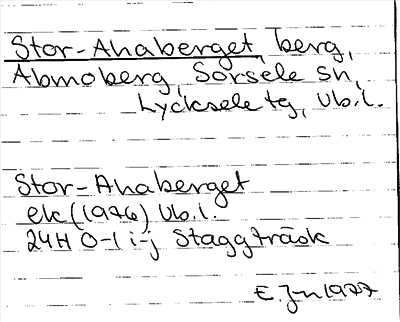 Stor-Ahaberget, berg,
Abmoberg, Sorsele sn,
Lycksele tg, Vb.l.
Stor-Ahaberget
ek (1976) Vb.l.
24H 0-1 i-j Staggträsk
E. Jn 1977